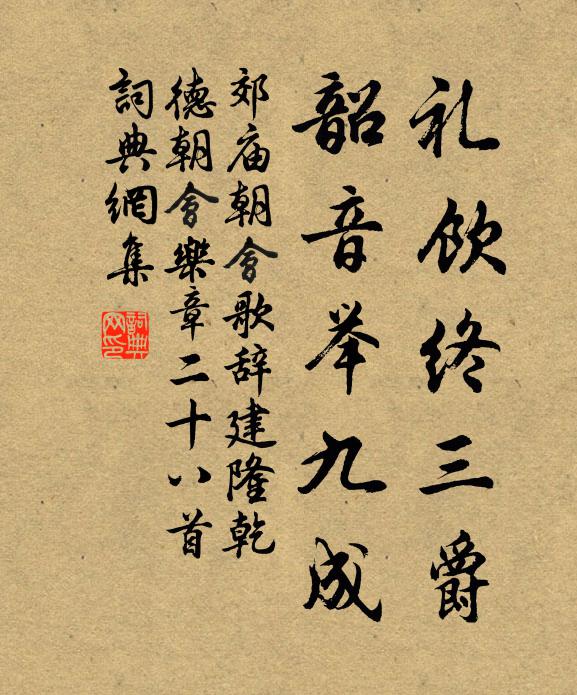 礼饮终三爵
韶音举九成
郊庙朝会歌辞建隆乾
德朝会樂章二十八首
詞典網集
詞典网印